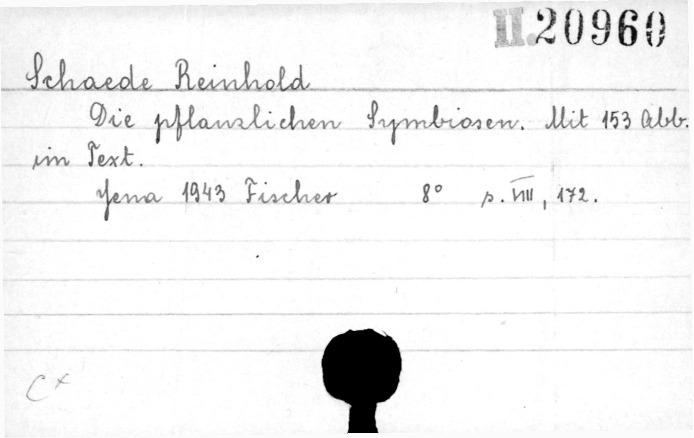 II.20960
Schaede Reinhold
Die pflanzlichen Symbiosen. Mit 153 Abb.
im Text.
Jena 1943 Fischer 8° p. VIII, 172.
C x